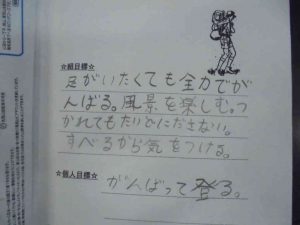 ☆組目標☆
足がいたくても全力でが
んばる。風景を楽しむ。つ
かれてもたいどにださない。
すべるから気をつける。
☆個人目標☆
がんばって登る。